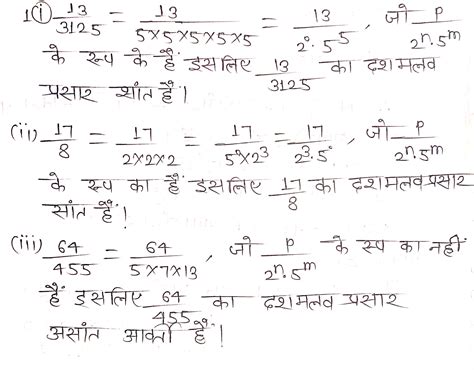 1(i) 13/3125 = 13/5×5×5×5×5 = 13/2⁰·5⁵ , जो p/2ⁿ·5ᵐ
के रूप के हैं इसलिए 13/3125 का दशमलव
प्रसार सांत हैं।
(ii) 17/8 = 17/2×2×2 = 17/5⁰×2³ = 17/2³·5⁰ , जो p/2ⁿ·5ᵐ
के रूप का हैं इसलिए 17/8 का दशमलव प्रसार
सांत हैं।
(iii) 64/455 = 64/5×7×13 , जो p/2ⁿ·5ᵐ के रूप का नहीं
हैं इसलिए 64/455 का दशमलव प्रसार
असांत आवर्ती हैं।